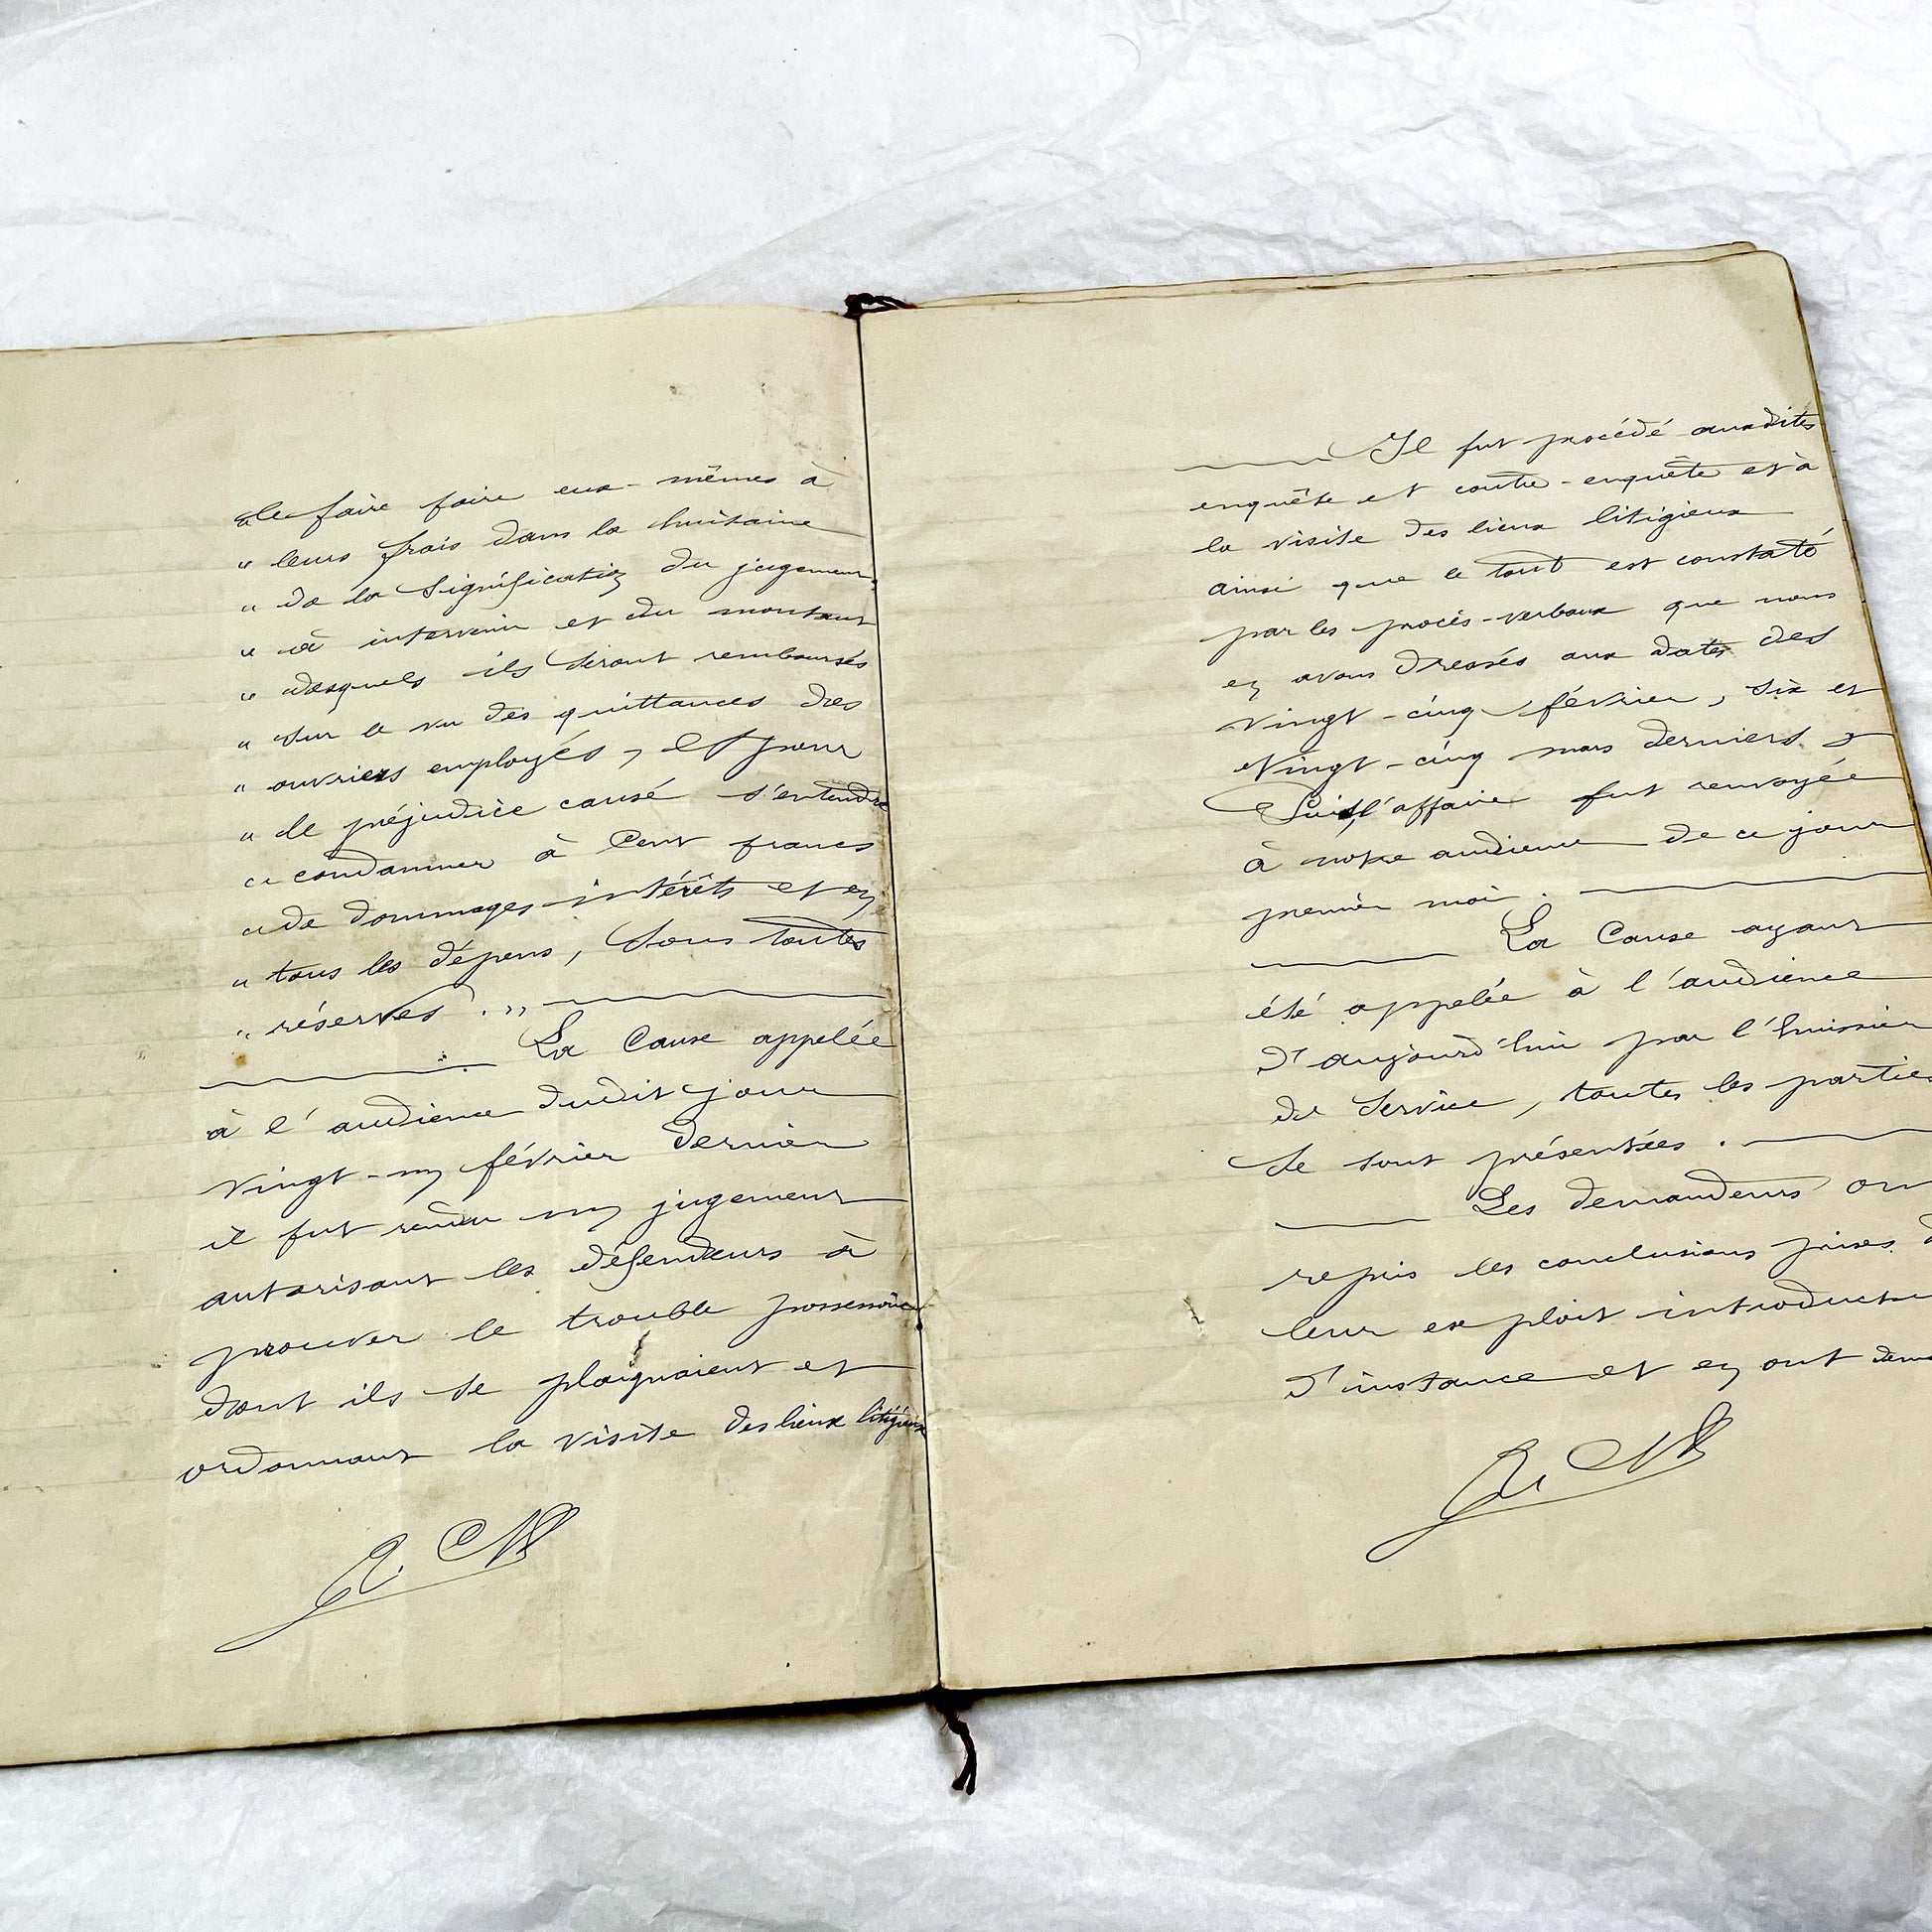 " le faire faire eux-mêmes à
" leurs frais dans la huitaine
" de la signification du jugement
" à intervenir et du montant
" desquels ils seront remboursés
" sur le vu des quittances des
" ouvriers employés, et pour
" le préjudice causé s'entendre
" condamner à Cent francs
" de dommages-intérêts et en
" tous les dépens, Sous toutes
" réserves. "
La Cause appelée
à l'audience dudit jour
vingt-un février dernier
il fut rendu un jugement
autorisant les défendeurs à
prouver le trouble possessoire
dont ils se plaignaient et
ordonnant la visite des lieux litigieux
Il fut procédé auxdites
enquête et contre-enquête et à
la visite des lieux litigieux
ainsi que le tout est constaté
par les procès-verbaux que nous
en avons dressés aux dates des
vingt-cinq février, six et
vingt-cinq mars derniers
Puis l'affaire fut renvoyée
à notre audience de ce jour
premier mai.
La Cause ayant
été appelée à l'audience
d'aujourd'hui par l'huissier
de Service, toutes les parties
se sont présentées.
Les demandeurs ont
repris les conclusions prises d
leur exploit introductif
d'instance et en ont dema